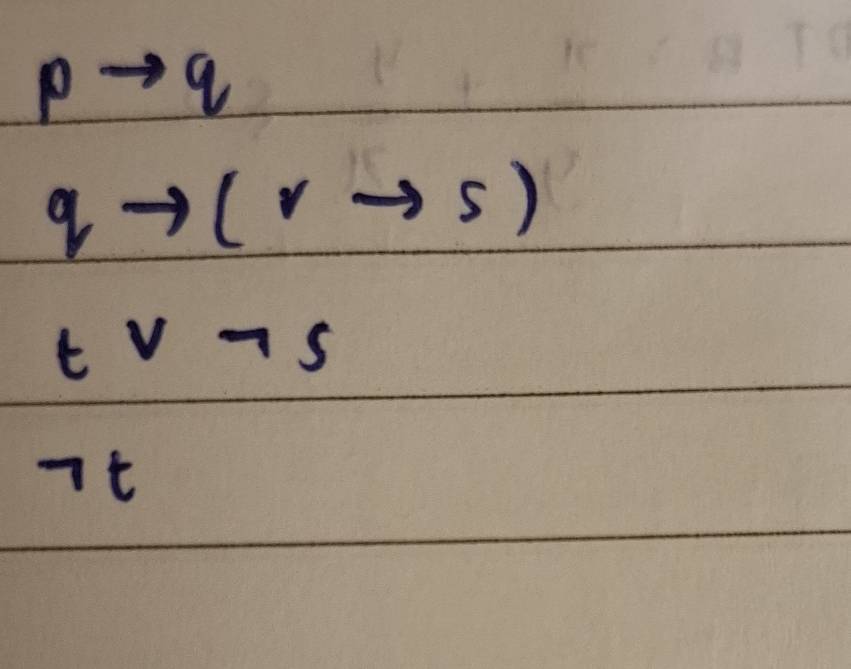 p → q
q → ( r → s )
t ∨ ¬ s
¬ t